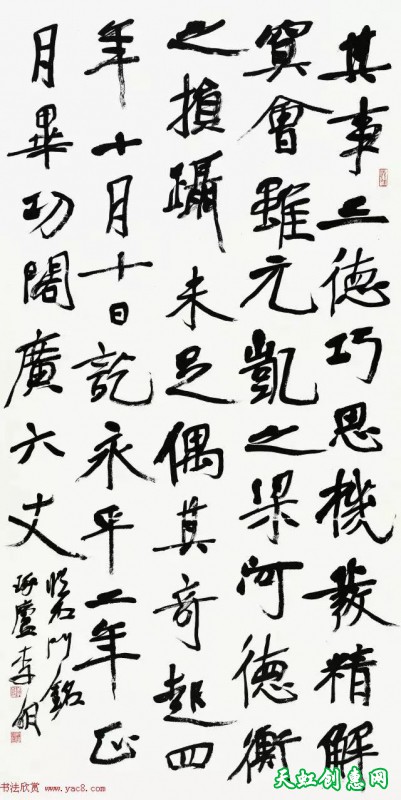 其事三德巧思機發精解
冥會雖元凱之梁河德衡
之損躡未足偶其奇起四
年十月十日訖永平二年正
月畢功閣廣六丈
臨石門銘
琢廬李明
书法欣赏 www.yac8.com
天虹创意网